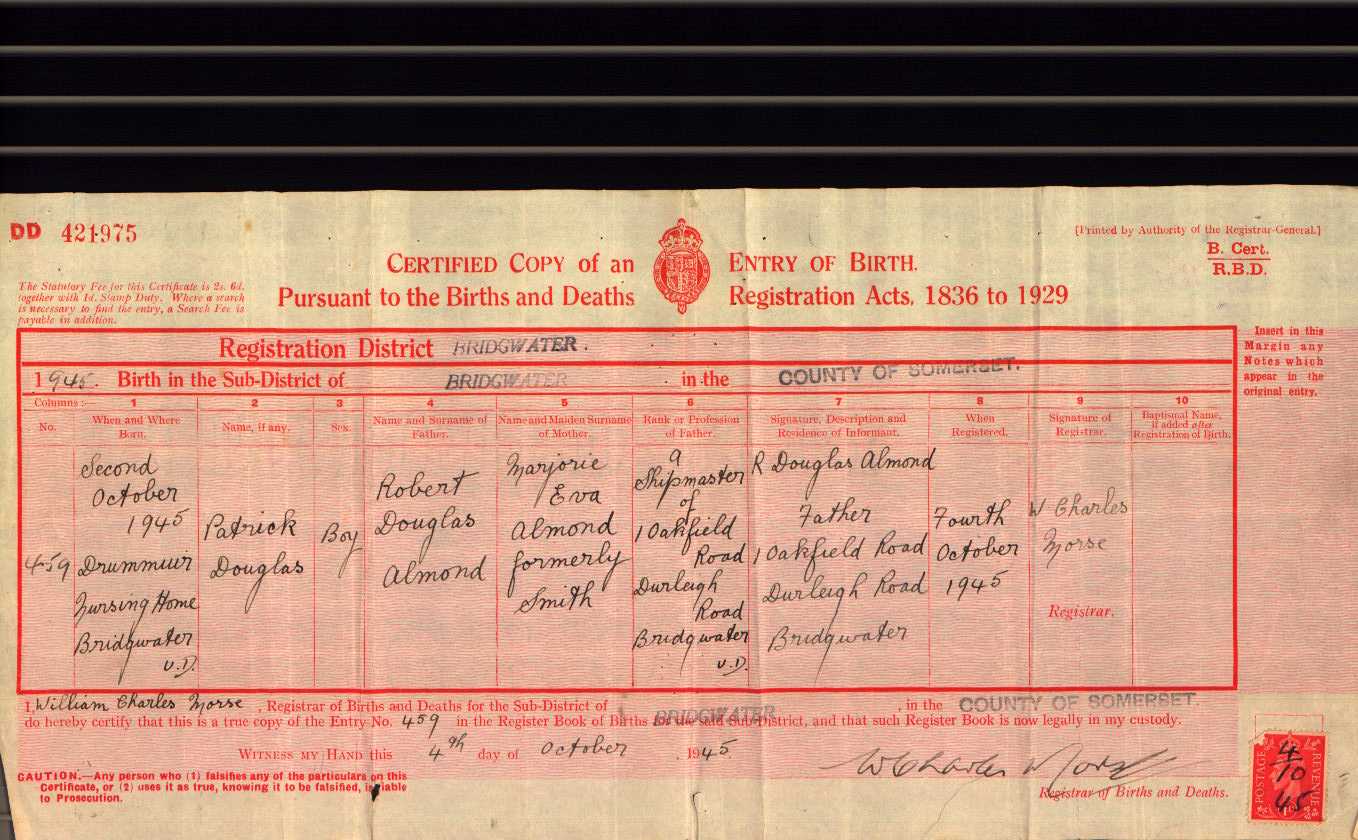 DD 421975
[Printed by Authority of the Registrar-General.]
B. Cert.
R.B.D.
CERTIFIED COPY of an ENTRY OF BIRTH.
Pursuant to the Births and Deaths Registration Acts, 1836 to 1929
The Statutory Fee for this Certificate is 2s. 6d.
together with 1d. Stamp Duty. Where a search
is necessary to find the entry, a Search Fee is
payable in addition.
Insert in this
Margin any
Notes which
appear in the
original entry.
Registration District BRIDGWATER.
1945. Birth in the Sub-District of BRIDGWATER in the COUNTY OF SOMERSET.
Columns :— 1 2 3 4 5 6 7 8 9 10
No.
When and Where
Born.
Name, if any.
Sex.
Name and Surname of
Father.
Name and Maiden Surname
of Mother.
Rank or Profession
of Father.
Signature, Description and
Residence of Informant.
When
Registered.
Signature of
Registrar.
Baptismal Name,
if added after
Registration of Birth.
459
Second
October
1945
Drummuir
Nursing Home
Bridgwater
U.D.
Patrick
Douglas
Boy
Robert
Douglas
Almond
Marjorie
Eva
Almond
formerly
Smith
a
Shipmaster
of
1 Oakfield
Road
Durleigh
Road
Bridgwater
U.D.
R Douglas Almond
Father
1 Oakfield Road
Durleigh Road
Bridgwater
Fourth
October
1945
W Charles
Morse
Registrar.
I, William Charles Morse, Registrar of Births and Deaths for the Sub-District of BRIDGWATER, in the COUNTY OF SOMERSET.
do hereby certify that this is a true copy of the Entry No. 459 in the Register Book of Births for the said Sub-District, and that such Register Book is now legally in my custody.
WITNESS MY HAND this 4th day of October 1945.
W Charles Morse
Registrar of Births and Deaths.
CAUTION.—Any person who (1) falsifies any of the particulars on this
Certificate, or (2) uses it as true, knowing it to be falsified, is liable
to Prosecution.
POSTAGE REVENUE
4
10
45
1D